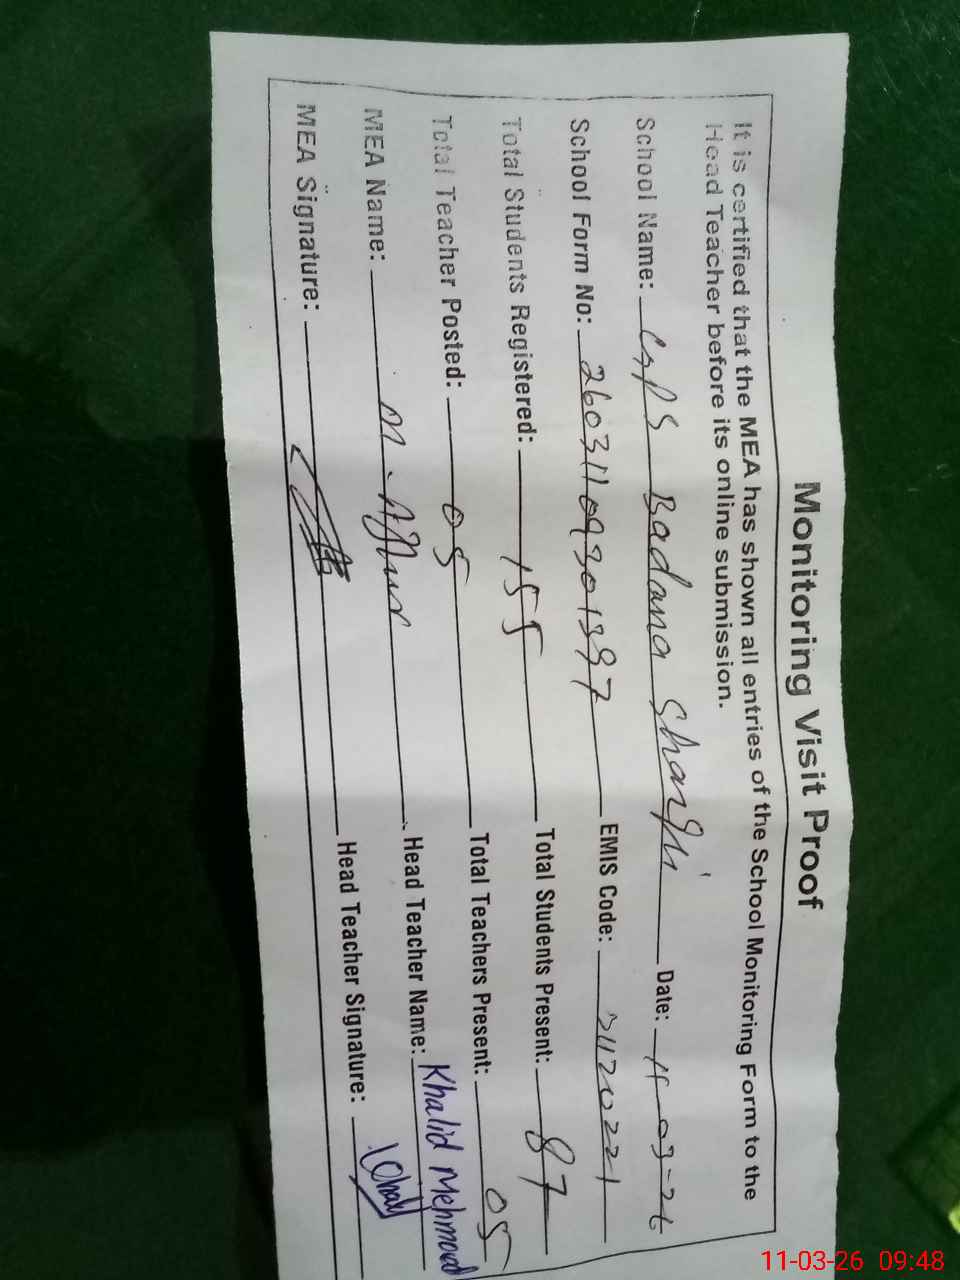 Monitoring Visit Proof
It is certified that the MEA has shown all entries of the School Monitoring Form to the
Head Teacher before its online submission.
School Name: GPS Badana Sharqi Date: 11-03-26
School Form No: 26031109301397 EMIS Code: 31120221
Total Students Registered: 155 Total Students Present: 87
Total Teacher Posted: 05 Total Teachers Present: 05
MEA Name: M. Head Teacher Name: Khalid Mehmood
MEA Signature: Head Teacher Signature:
11-03-26 09:48